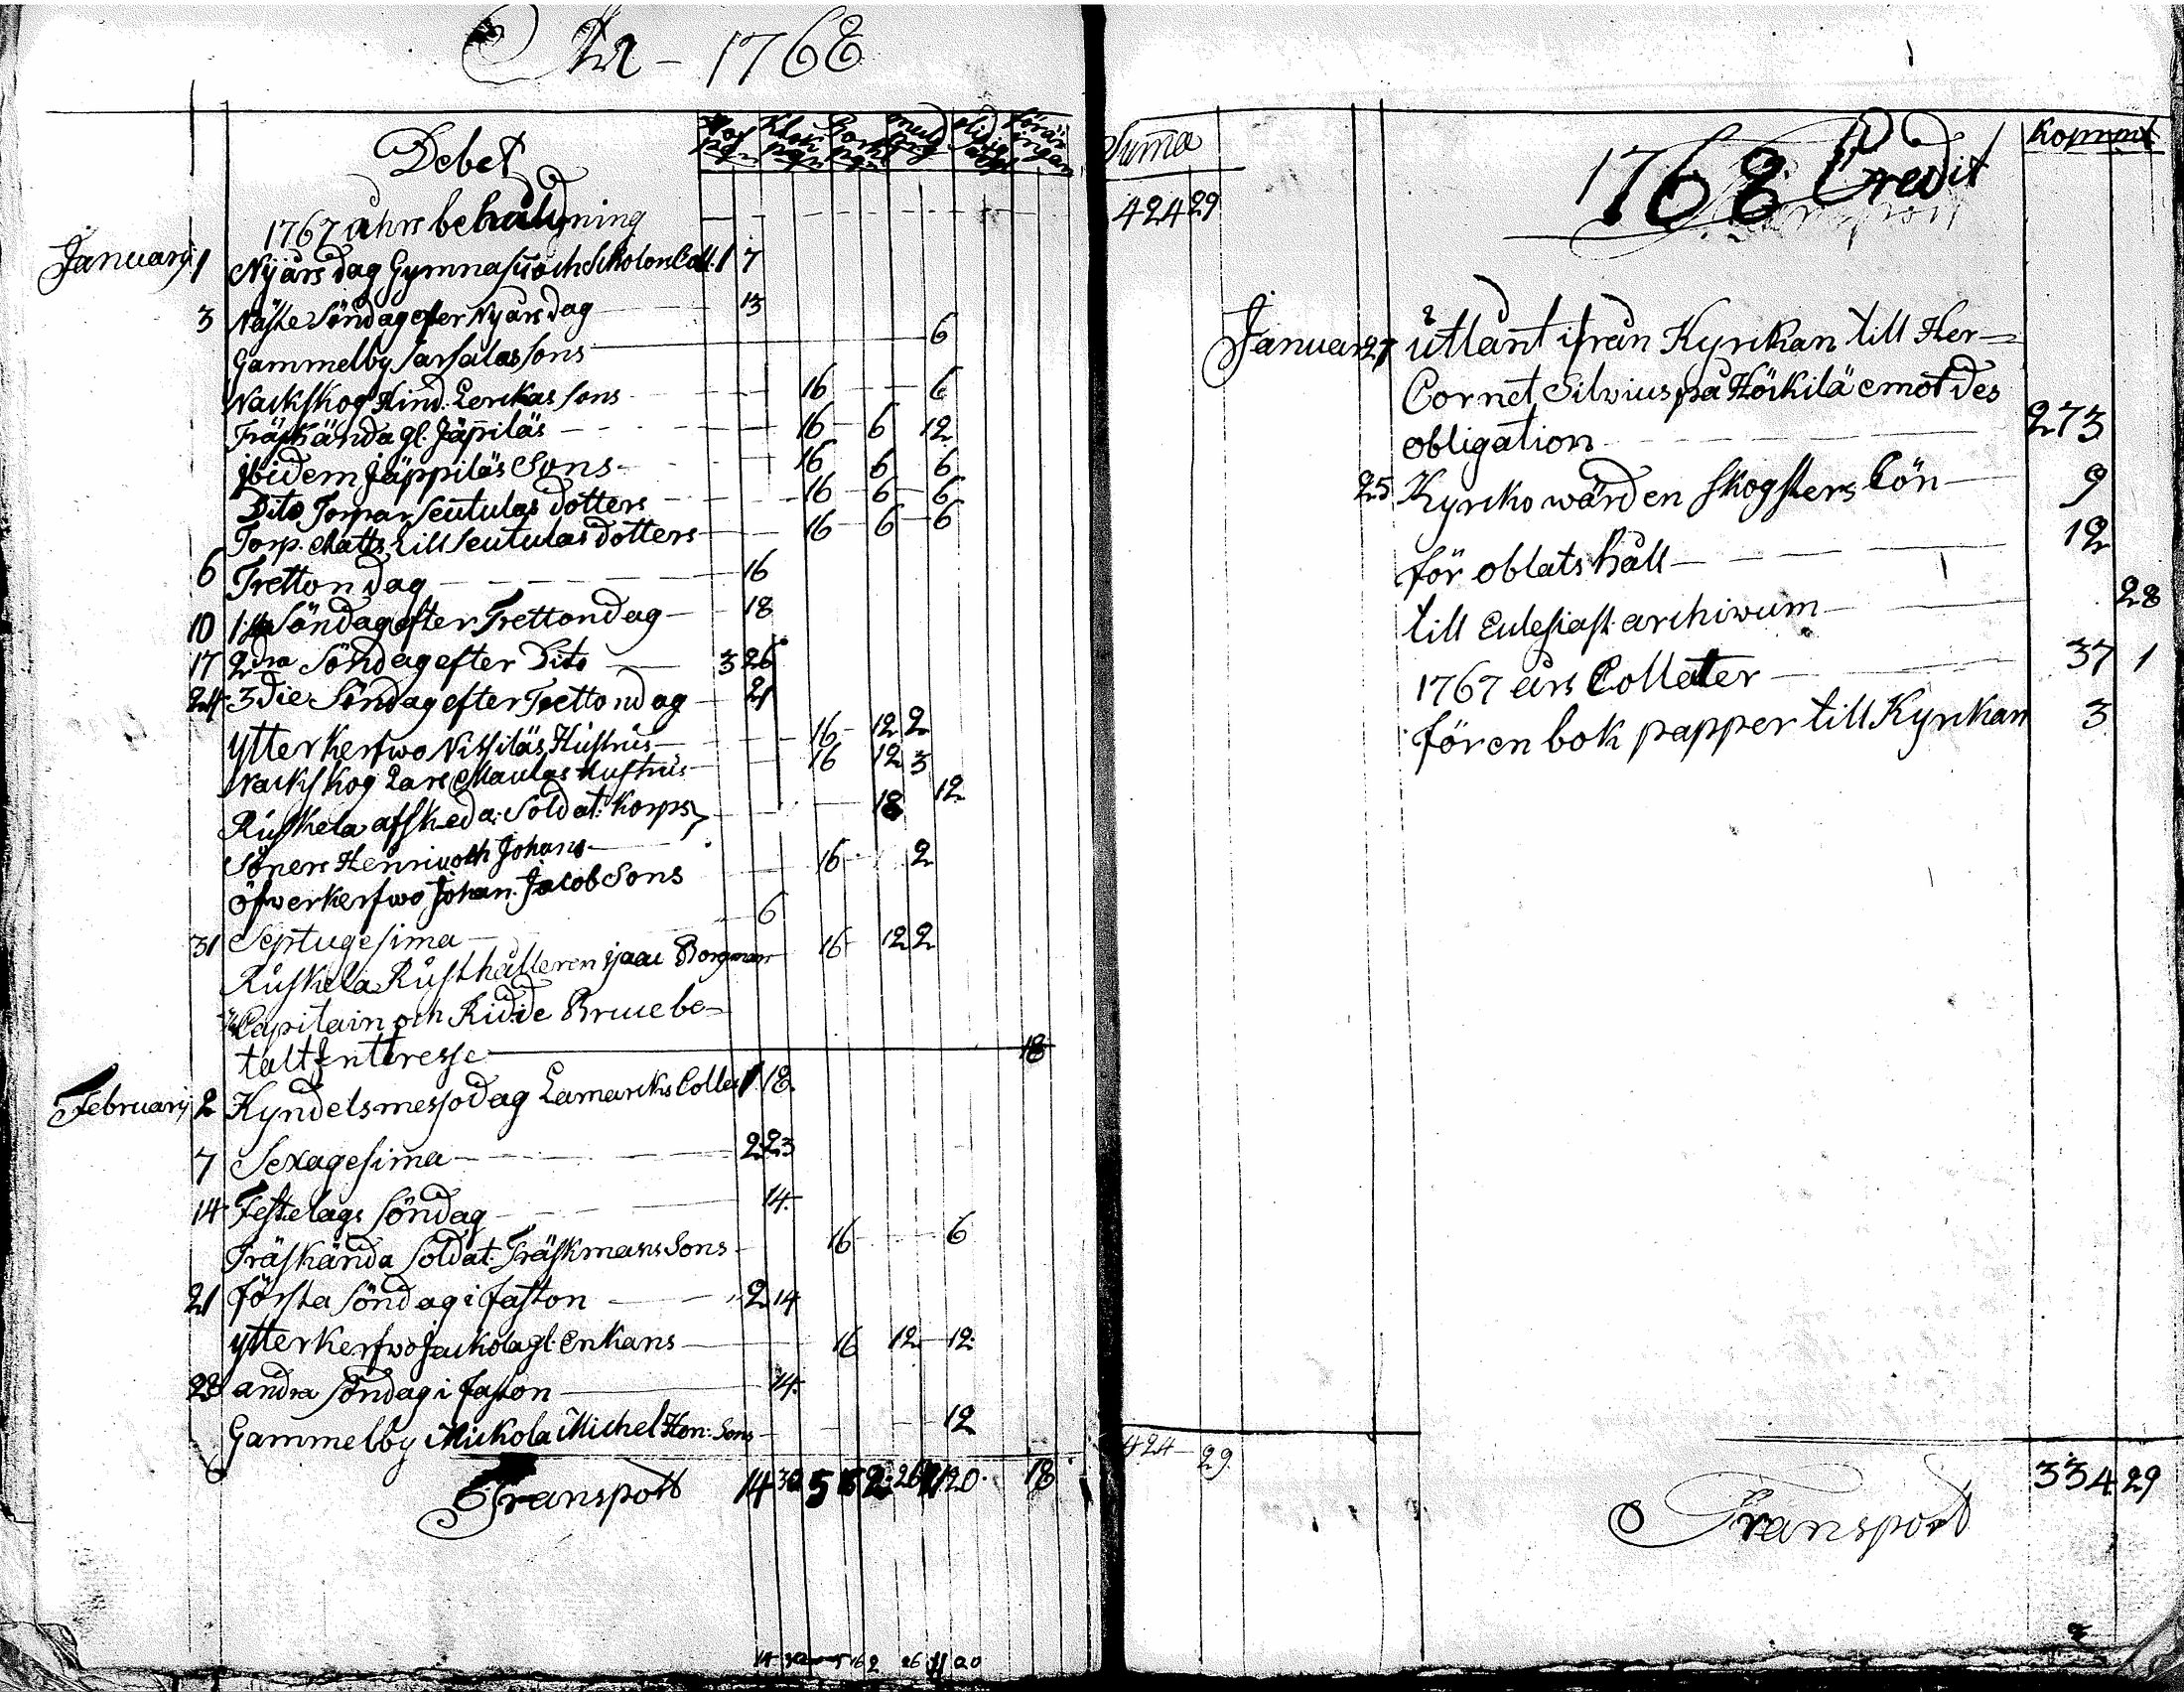 1768
Debet
1767 åhrs behåldning
Januarij 1 Nyårs dag Gymnasii och Scholons Coll. 1 7
3 Näste Söndag efter Nyårs dag 13
Gammelby Sarsalas Sons 6
Nackskog Hind. Lerckas Sons 16 6
Träskända gl. Jäpiläs 16 6 12
jbidem Jäppiläs Sons 16 6 6
Dito Torpar Seutulas dotters 16 6 6
Torp. Matts Lill Seutulas dotters 16 6 6
6 Tretton dag 16
10 1 Söndag efter Trettondag 18
17 2dra Söndag efter Dito 3 26
24 3die Söndag efter Trettondag 21
Ytterkerfwo Nissiläs Hustrus 16 12 2
Nackskog Lars Maulas Hustrus 16 12 3
Ruskela afskeda: Soldat: Korps 18 12
Söners Henric och Johans
Öfwerkerfwo Johan Jacob Sons 16 2
31 Septugesima 6
Ruskela Rusthålleren jsaac Borgman 16 12 2
Capitain och Ridd: Bruce be=
talt Interesse 18
Februarij 2 Kyndelsmesso dag Lamarcks Collec 1. 18.
7 Sexagesima 2 23
14 Festelags Söndag 14.
Träskända Soldat. Träskmans Sons 16 6
21 första Söndag i faston 2 14
ytterkerfwo Jackola gl. Enkans 16 12 12.
28 andra Söndag i faston 14.
Gammelby Mickola Michel Hen: Sons 12
Transport 14 30 5 16 2 26 11 20 18
14 30 5 16 2 26 11 20
Suma
424 29
424 29
1768 Credit
Kopmnt
Januari 27 utlånt ifrån Kyrckan till Her=
Cornet Silvius på Höckilä emot des
obligation 273
25 Kyrcko wärden Skogsters Lön 9
för oblats håll 12
till Eclesiast. archivum 28
1767 års Collecter 37 1
för en bok papper till Kyrckan 3
334 29
Transport